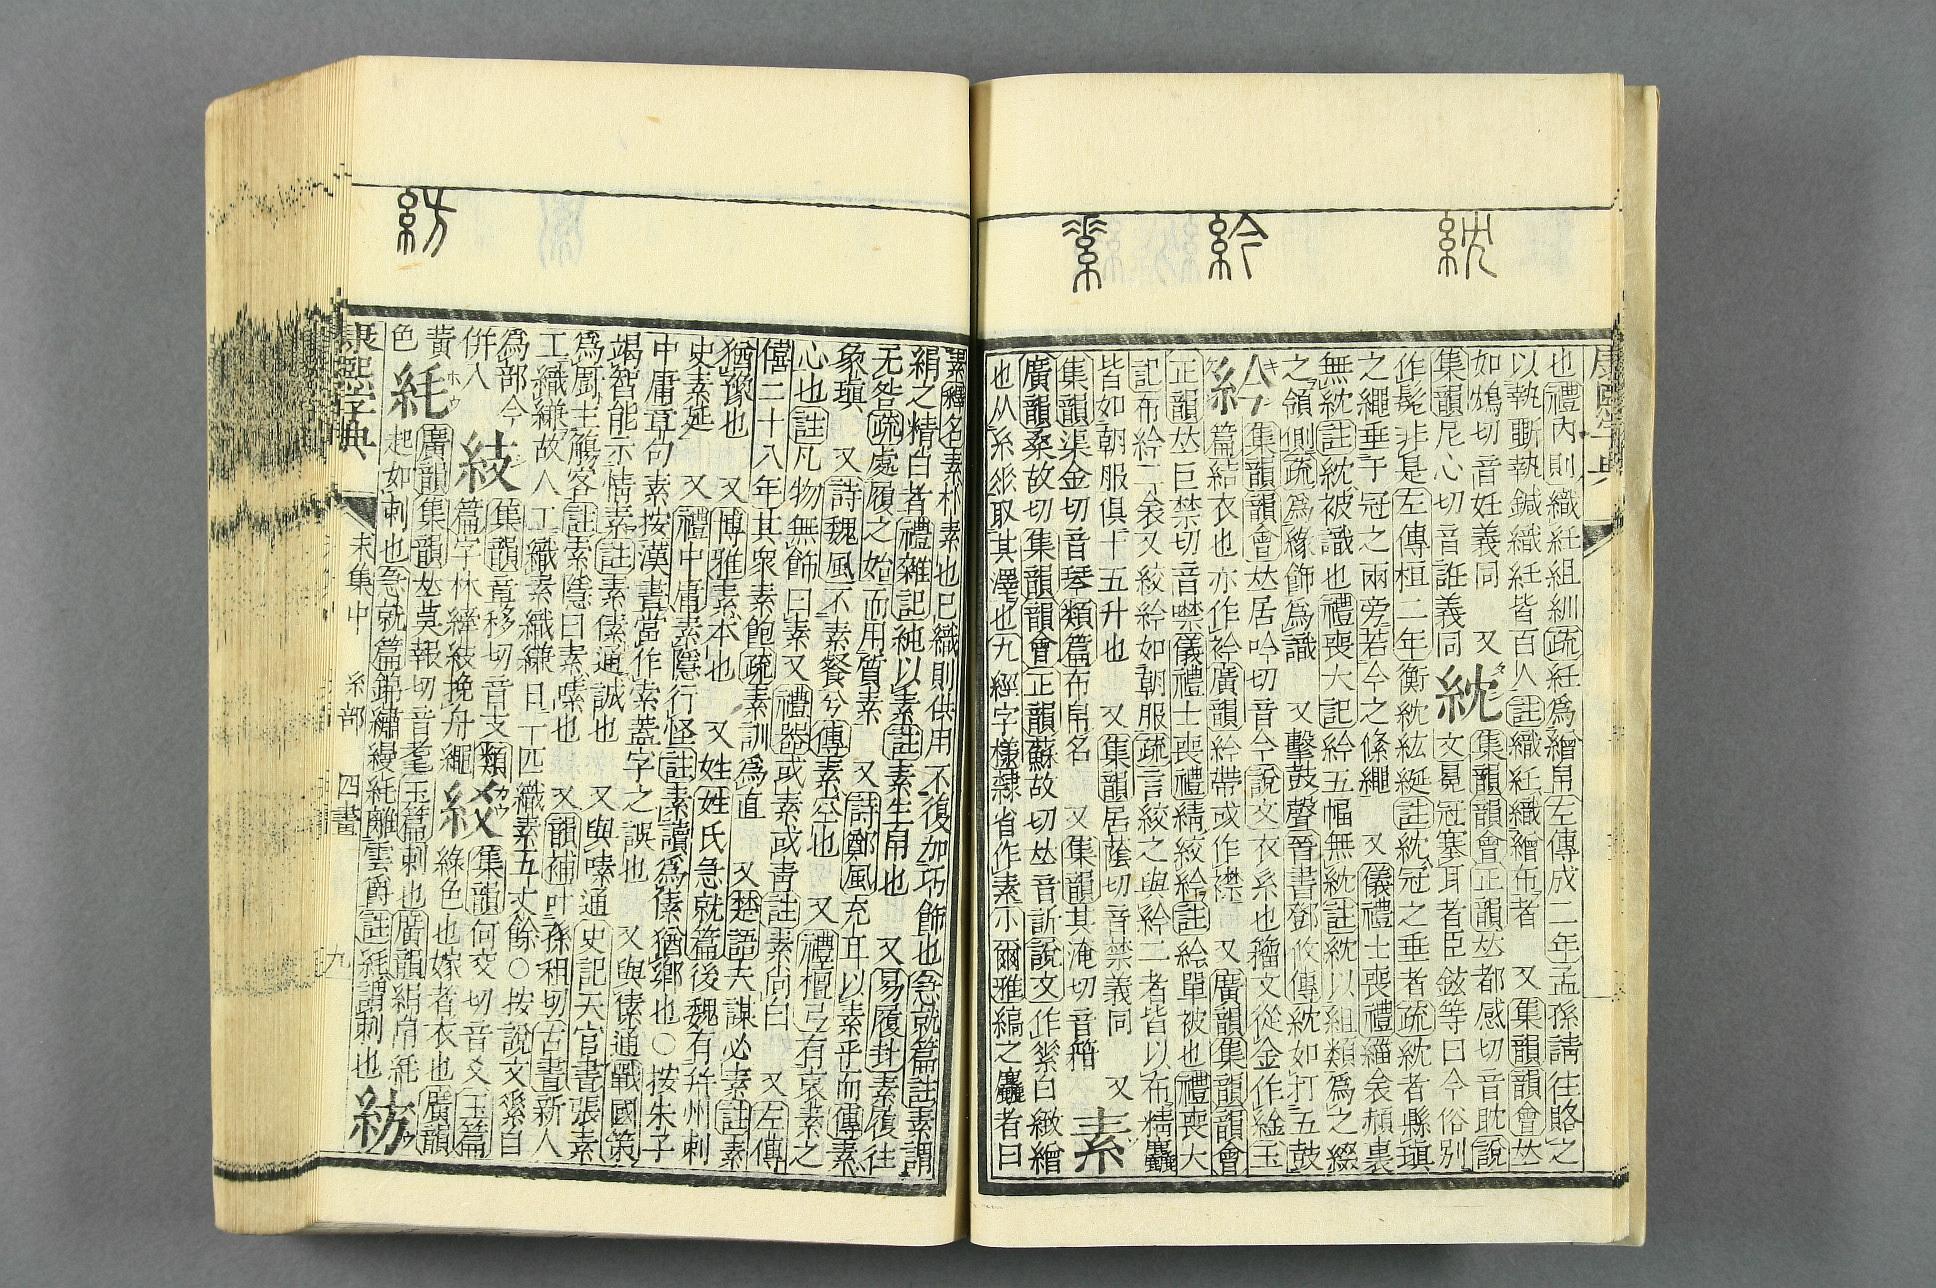 紞
紟
素
紡
康熙字典
也禮內則織紝組紃疏紝爲繒帛左傳成二年孟孫請往賂之
以執斲執鍼織紝皆百人註織紝織繒布者 又集韻韻會𠀤
如鴆切音妊義同 又
集韻尼心切音 義同
紞
集韻韻會正韻𠀤都感切音眈說
文冕冠塞耳者臣鉉等曰今俗別
作髧非是左傳桓二年衡紞紘綖註紞冠之垂者疏紞者縣瑱
之繩垂于冠之兩旁若今之絛繩 又儀禮士喪禮緇衾赬裏
無紞註紞被識也禮喪大記紟五幅無紞註紞以組類爲之綴
之領側疏爲緣飾爲識 又擊鼓聲晉書鄧攸傳紞如打五鼓
紟
集韻韻會𠀤居吟切音今說文衣系也籀文從金作䋮玉
篇結衣也亦作衿廣韻紟帶或作襟 又廣韻集韻韻會
正韻𠀤巨禁切音噤儀禮士喪禮綪絞紟註紟單被也禮喪大
記布紟二衾又絞紟如朝服疏言絞之與紟二者皆以布精麤
皆如朝服俱十五升也 又集韻居蔭切音禁義同 又
集韻渠金切音琴類篇布帛名 又集韻其淹切音箝
素
廣韻桑故切集韻韻會正韻蘇故切𠀤音訴說文作𦃃白緻繒
也从糸𠂹取其澤也九經字樣隷省作素小爾雅縞之麤者曰
素釋名素朴素也已織則供用不復加巧飾也急就篇註素謂
絹之精白者禮雜記純以素註素生帛也 又易履卦素履往
无咎疏處履之始而用質素 又詩鄭風充耳以素乎而傳素
象瑱 又詩魏風不素餐兮傳素空也 又禮檀弓有哀素之
心也註凡物無飾曰素又禮器或素或青註素尚白 又左傳
僖二十八年其衆素飽疏素訓爲直 又楚語夫謀必素註素
猶豫也 又博雅素本也 又姓姓氏急就篇後魏有幷州刺
史素延 又禮中庸素隱行怪註素讀爲傃猶鄕也○按朱子
中庸章句素按漢書當作索蓋字之誤也 又與傃通戰國策
竭智能示情素註素傃通誠也 又與嗉通史記天官書張素
爲廚主觴客註素隱曰素嗉也 又韻補叶孫租切古書新人
工織縑故人工織素織縑日一匹織素五丈餘○按說文𦃃自
爲部今
倂入
集韻章移切音支類
篇字林緯 挽舟繩
集韻何交切音爻玉篇
綠色也嫁者衣也廣韻
黃
色
ホウ
廣韻集韻𠀤莫報切音耄玉篇刺也廣韻絹帛
起如刺也急就篇錦繡縵 離雲爵註 謂刺也
紡
康熙字典
未集中 糸部 四畫 九